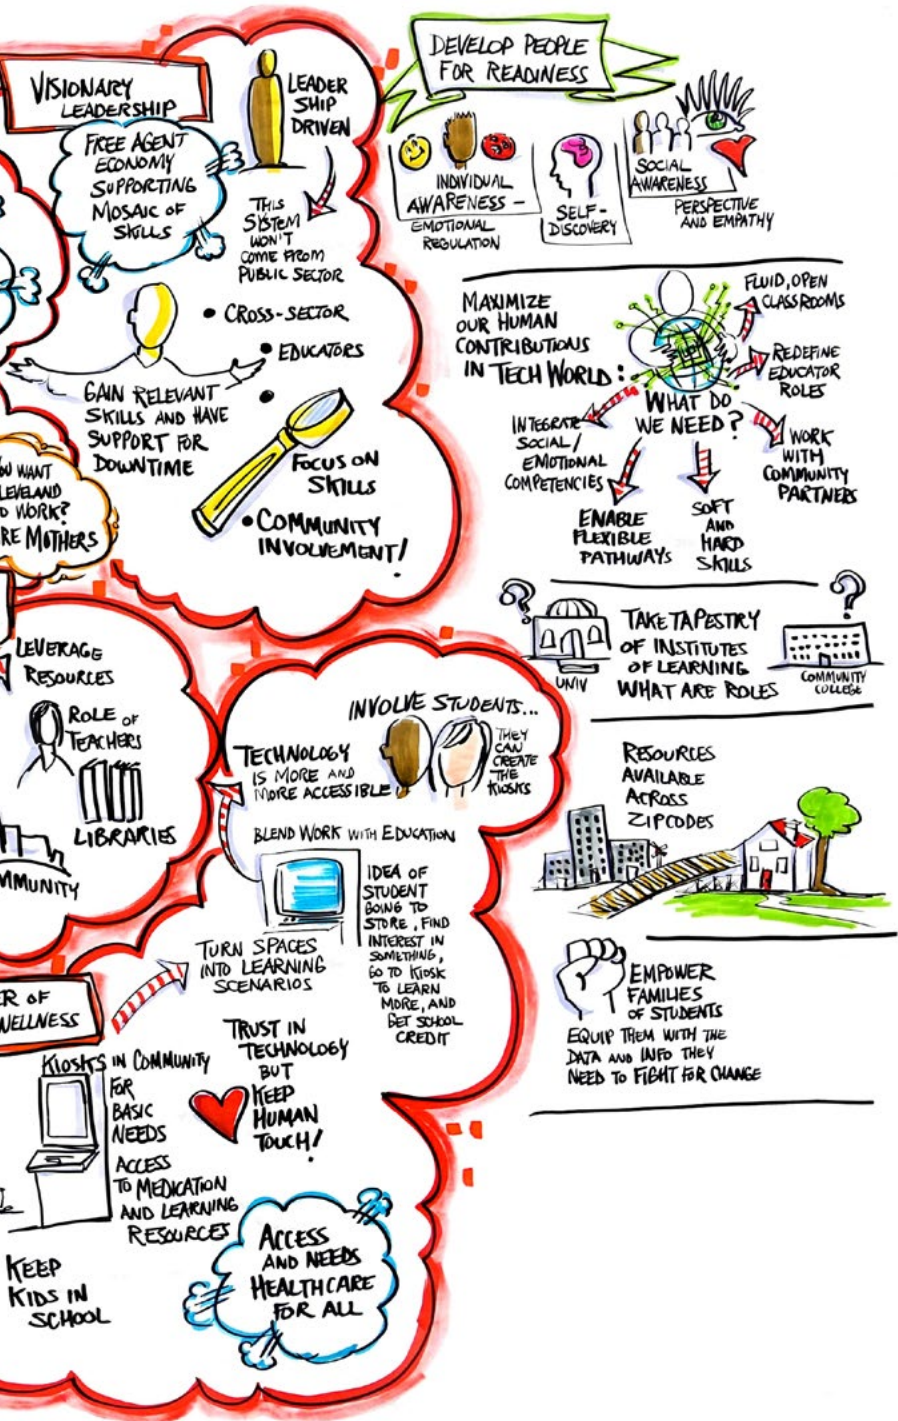 VISIONARY
LEADERSHIP
LEADER
SHIP
DRIVEN
FREE AGENT
ECONOMY
SUPPORTING
MOSAIC OF
SKILLS
THIS
SYSTEM
WON'T
COME FROM
PUBLIC SECTOR
• CROSS-SECTOR
• EDUCATORS
•
GAIN RELEVANT
SKILLS AND HAVE
SUPPORT FOR
DOWNTIME
FOCUS ON
SKILLS
• COMMUNITY
INVOLVEMENT!
WANT
WORK?
MOTHERS
LEVERAGE
RESOURCES
ROLE OF
TEACHERS
LIBRARIES
INVOLVE STUDENTS...
THEY
CAN
CREATE
THE
KIOSKS
TECHNOLOGY
IS MORE AND
MORE ACCESSIBLE
BLEND WORK WITH EDUCATION
IDEA OF
STUDENT
GOING TO
STORE, FIND
INTEREST IN
SOMETHING,
GO TO KIOSK
TO LEARN
MORE, AND
GET SCHOOL
CREDIT
TURN SPACES
INTO LEARNING
SCENARIOS
OF
WELLNESS
TRUST IN
TECHNOLOGY
BUT
KEEP
HUMAN
TOUCH!
KIOSKS IN COMMUNITY
FOR
BASIC
NEEDS
ACCESS
TO MEDICATION
AND LEARNING
RESOURCES
KEEP
KIDS IN
SCHOOL
ACCESS
AND NEEDS
HEALTHCARE
FOR ALL
DEVELOP PEOPLE
FOR READINESS
INDIVIDUAL
AWARENESS –
EMOTIONAL
REGULATION
SELF-
DISCOVERY
SOCIAL
AWARENESS
PERSPECTIVE
AND EMPATHY
MAXIMIZE
OUR HUMAN
CONTRIBUTIONS
IN TECH WORLD:
WHAT DO
WE NEED?
FLUID, OPEN
CLASSROOMS
REDEFINE
EDUCATOR
ROLES
WORK
WITH
COMMUNITY
PARTNERS
SOFT
AND
HARD
SKILLS
ENABLE
FLEXIBLE
PATHWAYS
INTEGRATE
SOCIAL/
EMOTIONAL
COMPETENCIES
?
?
UNIV
TAKE TAPESTRY
OF INSTITUTES
OF LEARNING
WHAT ARE ROLES
COMMUNITY
COLLEGE
RESOURCES
AVAILABLE
ACROSS
ZIPCODES
EMPOWER
FAMILIES
OF STUDENTS
EQUIP THEM WITH THE
DATA AND INFO THEY
NEED TO FIGHT FOR CHANGE